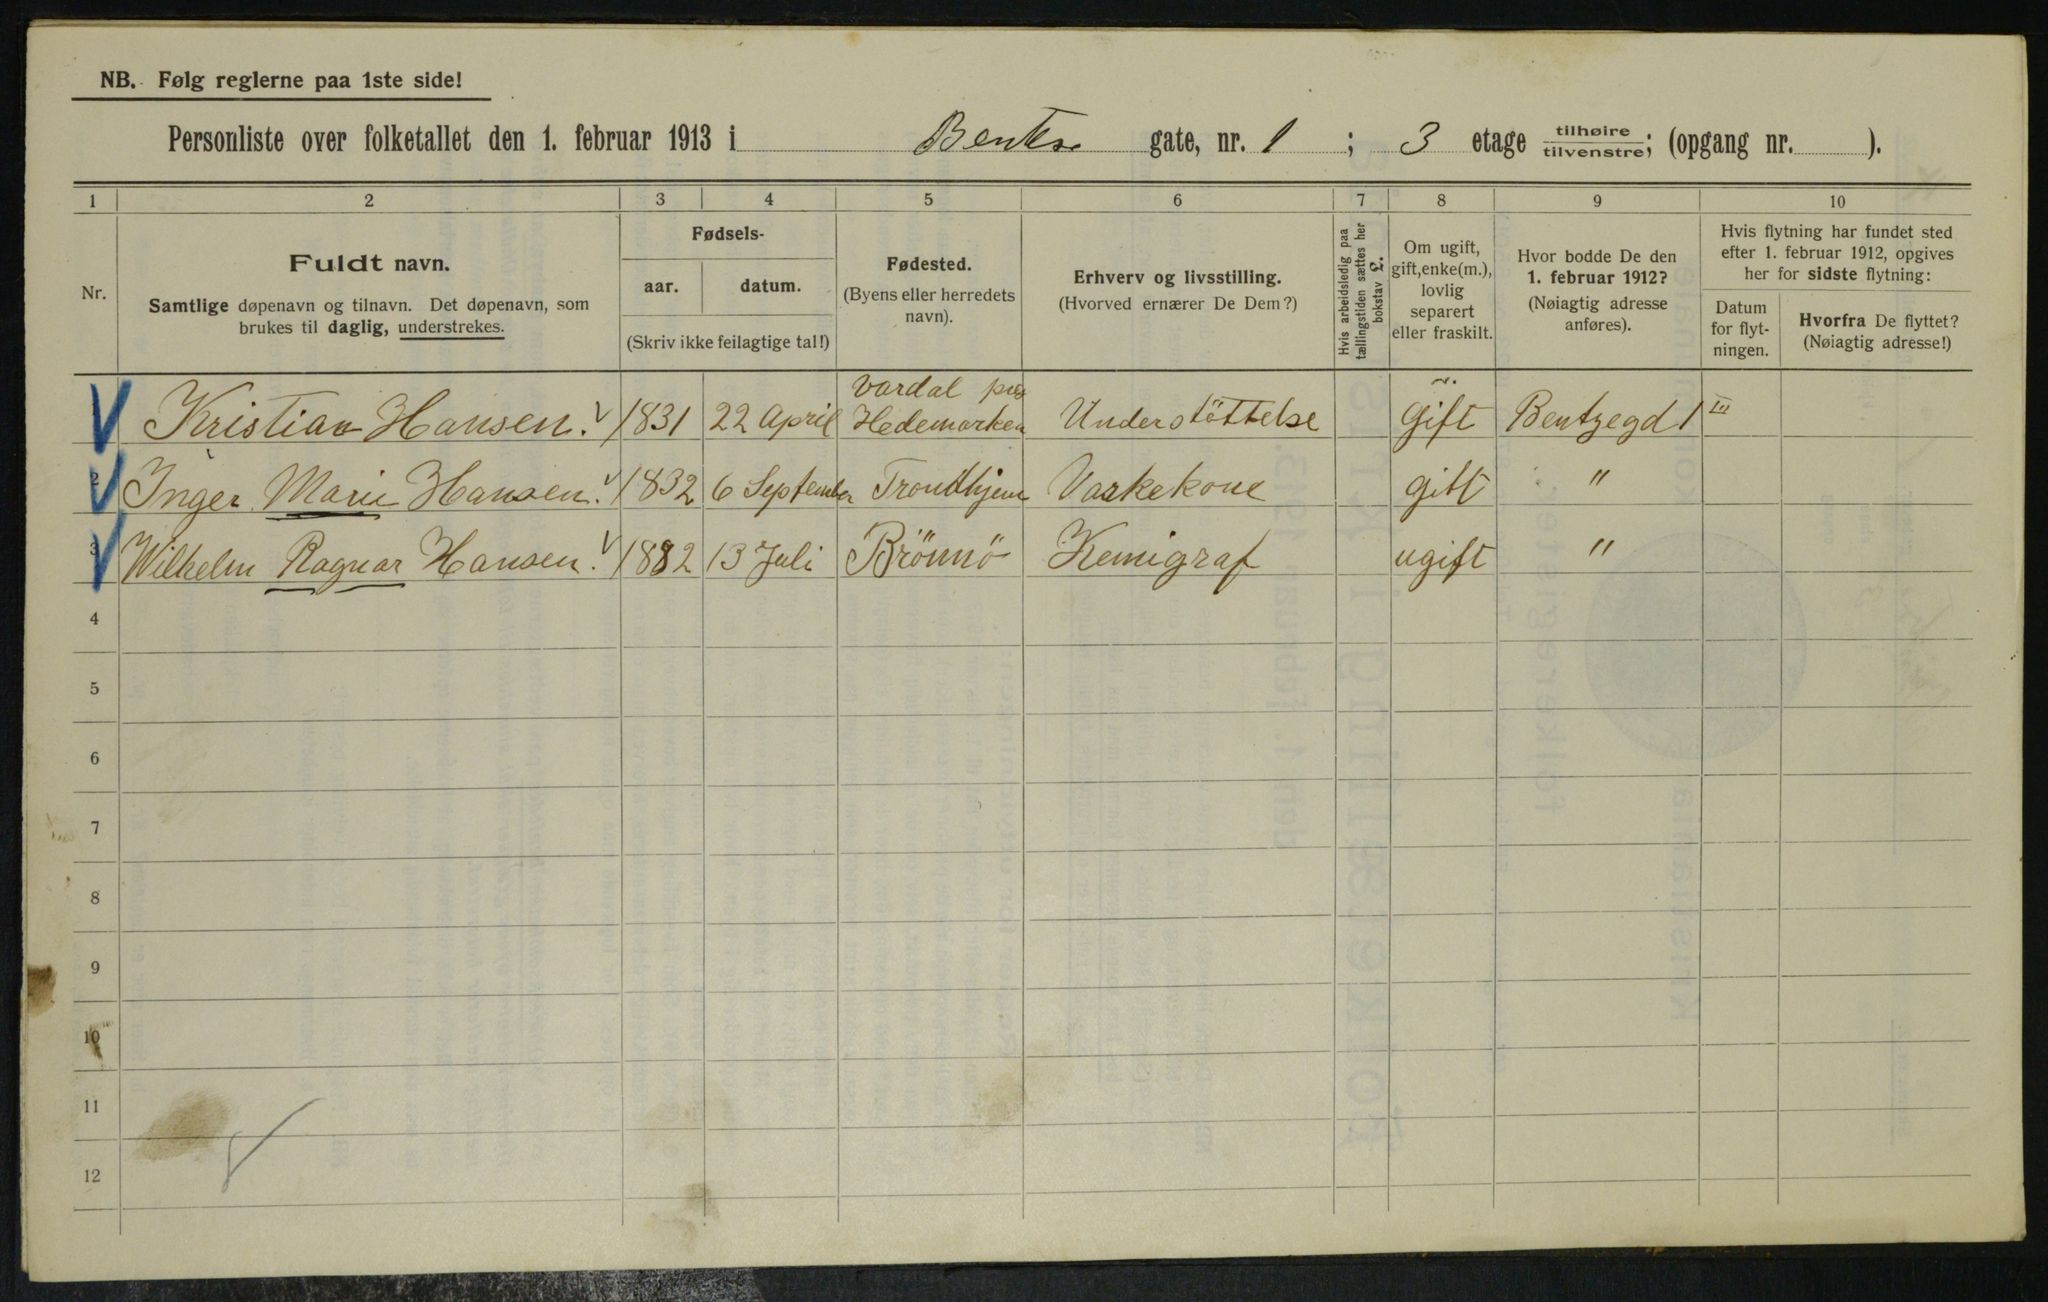 NB. Følg reglerne paa 1ste side!
Personliste over folketallet den 1. februar 1913 i Bentse gate, nr. 1 ; 3 etage tilhøire tilvenstre; (opgang nr. ).
1 2 3 4 5 6 7 8 9 10
Nr.
Fuldt navn.
Samtlige døpenavn og tilnavn. Det døpenavn, som
brukes til daglig, understrekes.
Fødsels-
aar. datum.
(Skriv ikke feilagtige tal!)
Fødested.
(Byens eller herredets
navn).
Erhverv og livsstilling.
(Hvorved ernærer De Dem?)
Hvis arbeidsledig paa
tællingstiden sættes her
bokstav L.
Om ugift,
gift, enke(m.),
lovlig
separert
eller fraskilt.
Hvor bodde De den
1. februar 1912?
(Nøiagtig adresse
anføres).
Hvis flytning har fundet sted
efter 1. februar 1912, opgives
her for sidste flytning:
Datum
for flyt-
ningen.
Hvorfra De flyttet?
(Nøiagtig adresse!)
1 Kristian Hansen. 1831 22 April Vardal Hedemarken Understöttelse gift Bentzegd 1 III
2 Inger Marie Hansen. 1832 6 September Trondhjem Vaskekone gift "
3 Wilhelm Ragnar Hansen. 1882 13 Juli Brönnö Kemigraf ugift "
4
5
6
7
8
9
10
11
12